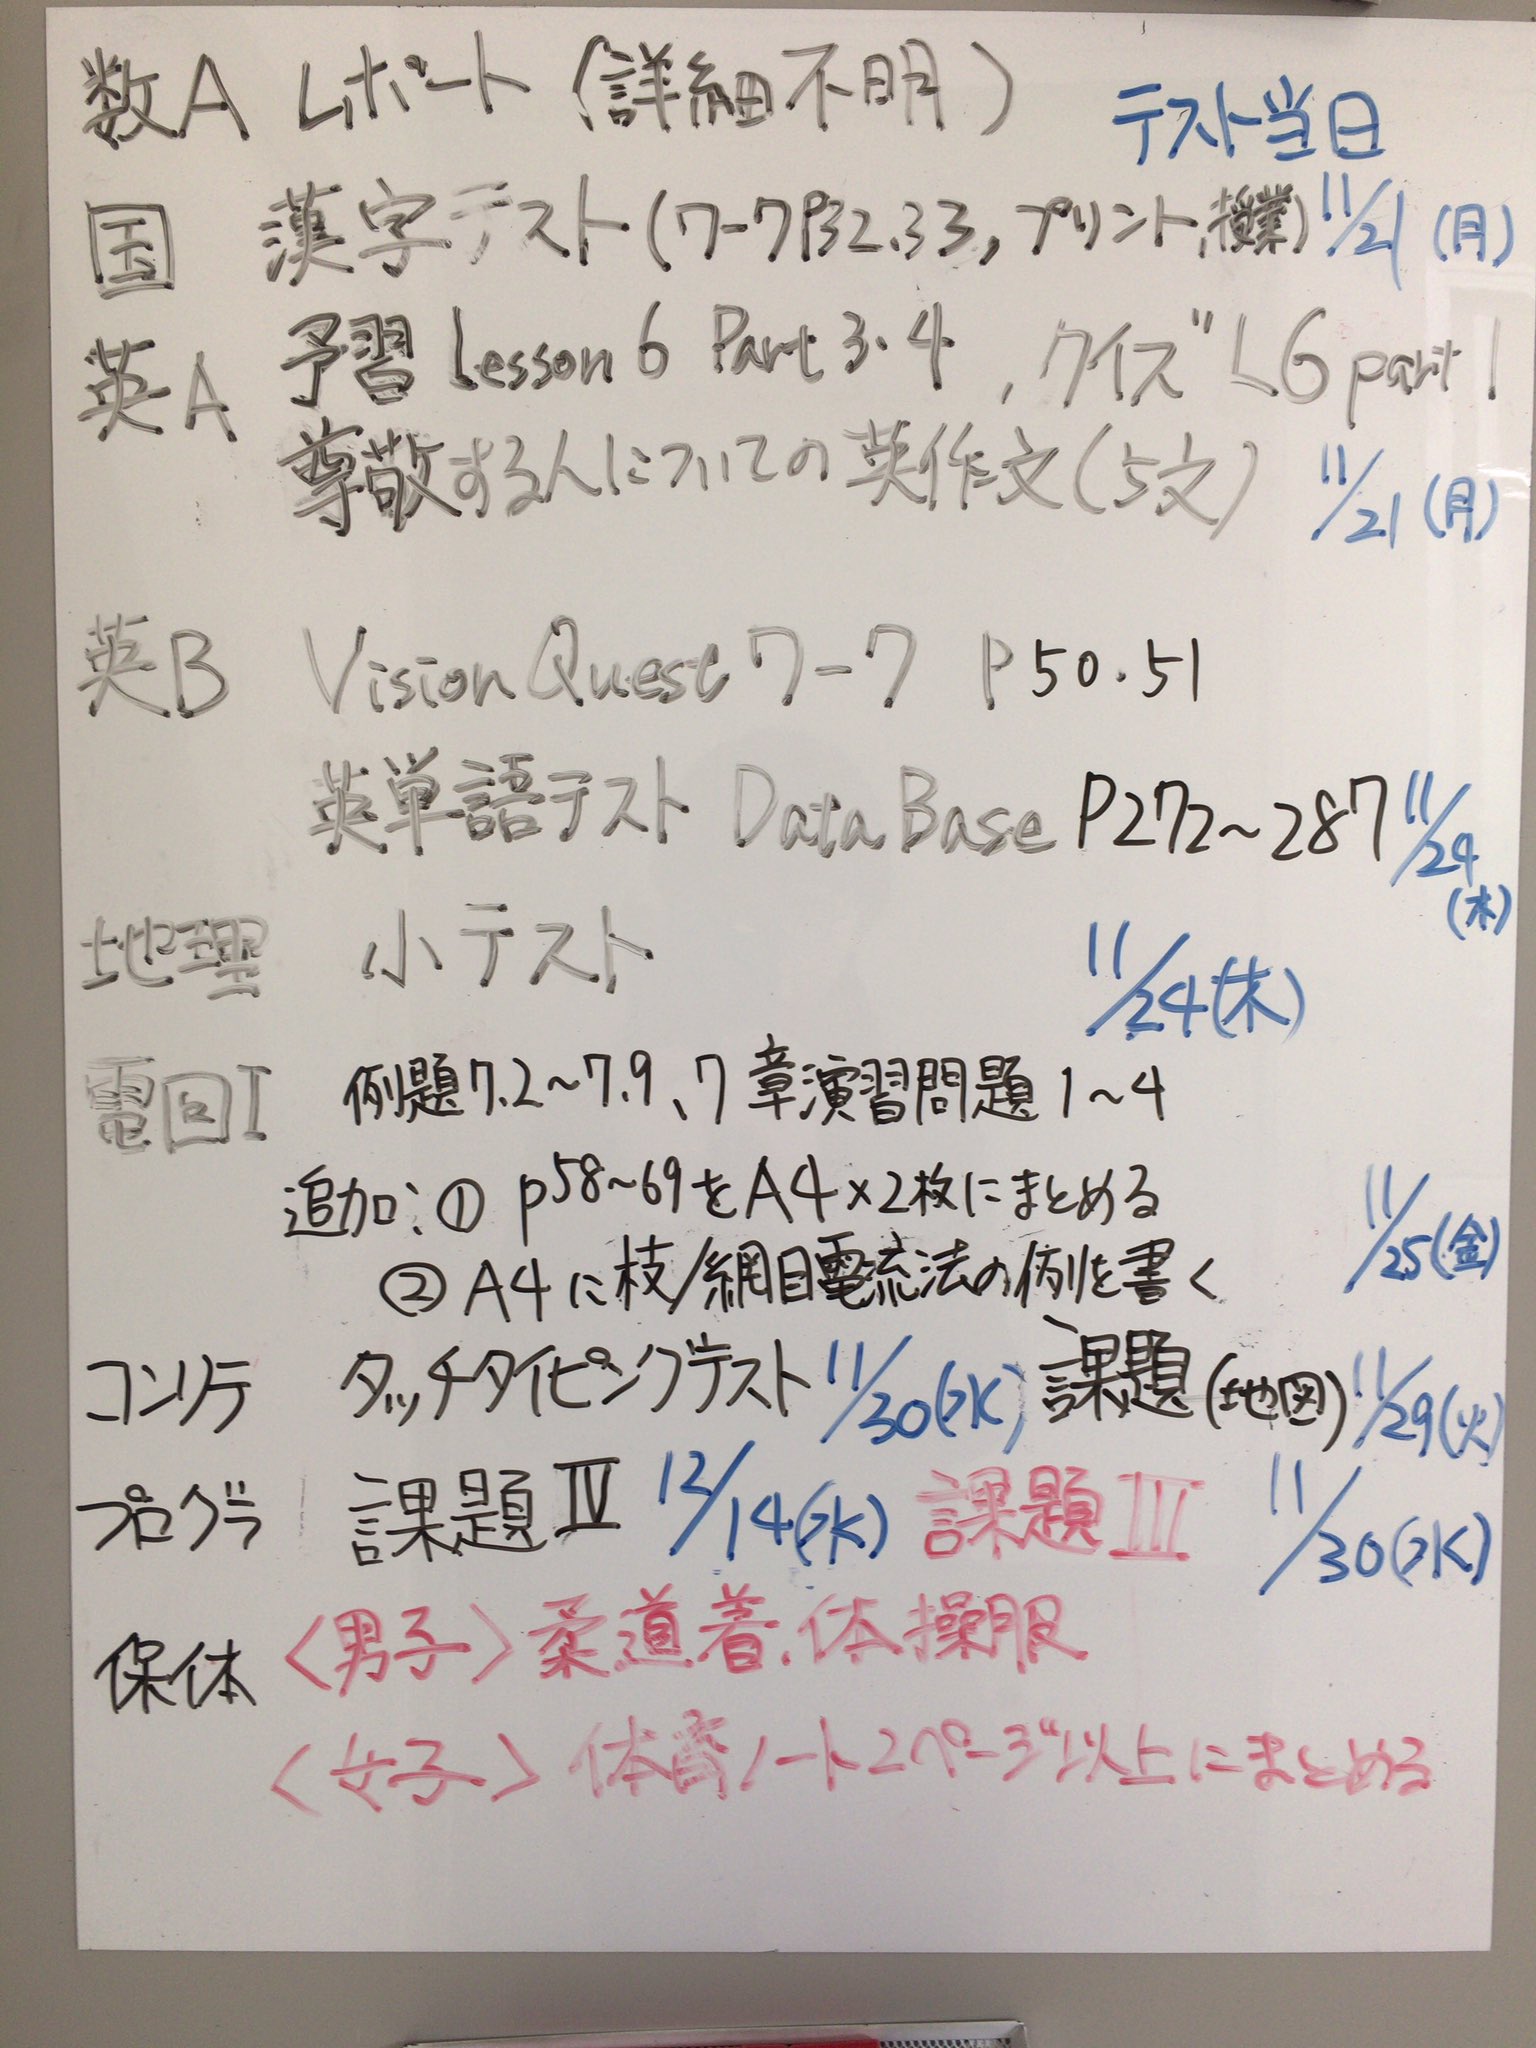 数A レポート(詳細不明) テスト当日
国 漢字テスト(ワークP32.33, プリント,授業) 11/21(月)
英A 予習 Lesson6 Part3・4, クイズ L6 part1
尊敬する人についての英作文(5文) 11/21(月)
英B Vision Quest ワーク P50.51
英単語テスト DataBase P272~287 11/24(木)
地理 小テスト 11/24(木)
電回I 例題7.2~7.9、7章演習問題1~4
追加:① p58~69をA4×2枚にまとめる
② A4に枝/網目電流法の例を書く 11/25(金)
コンリテ タッチタイピングテスト 11/30(水) 課題(地図) 11/29(火)
プログラ 課題Ⅳ 12/14(水) 課題Ⅲ 11/30(水)
保体 <男子>柔道着.体操服
<女子>体育ノート2ページ以上にまとめる